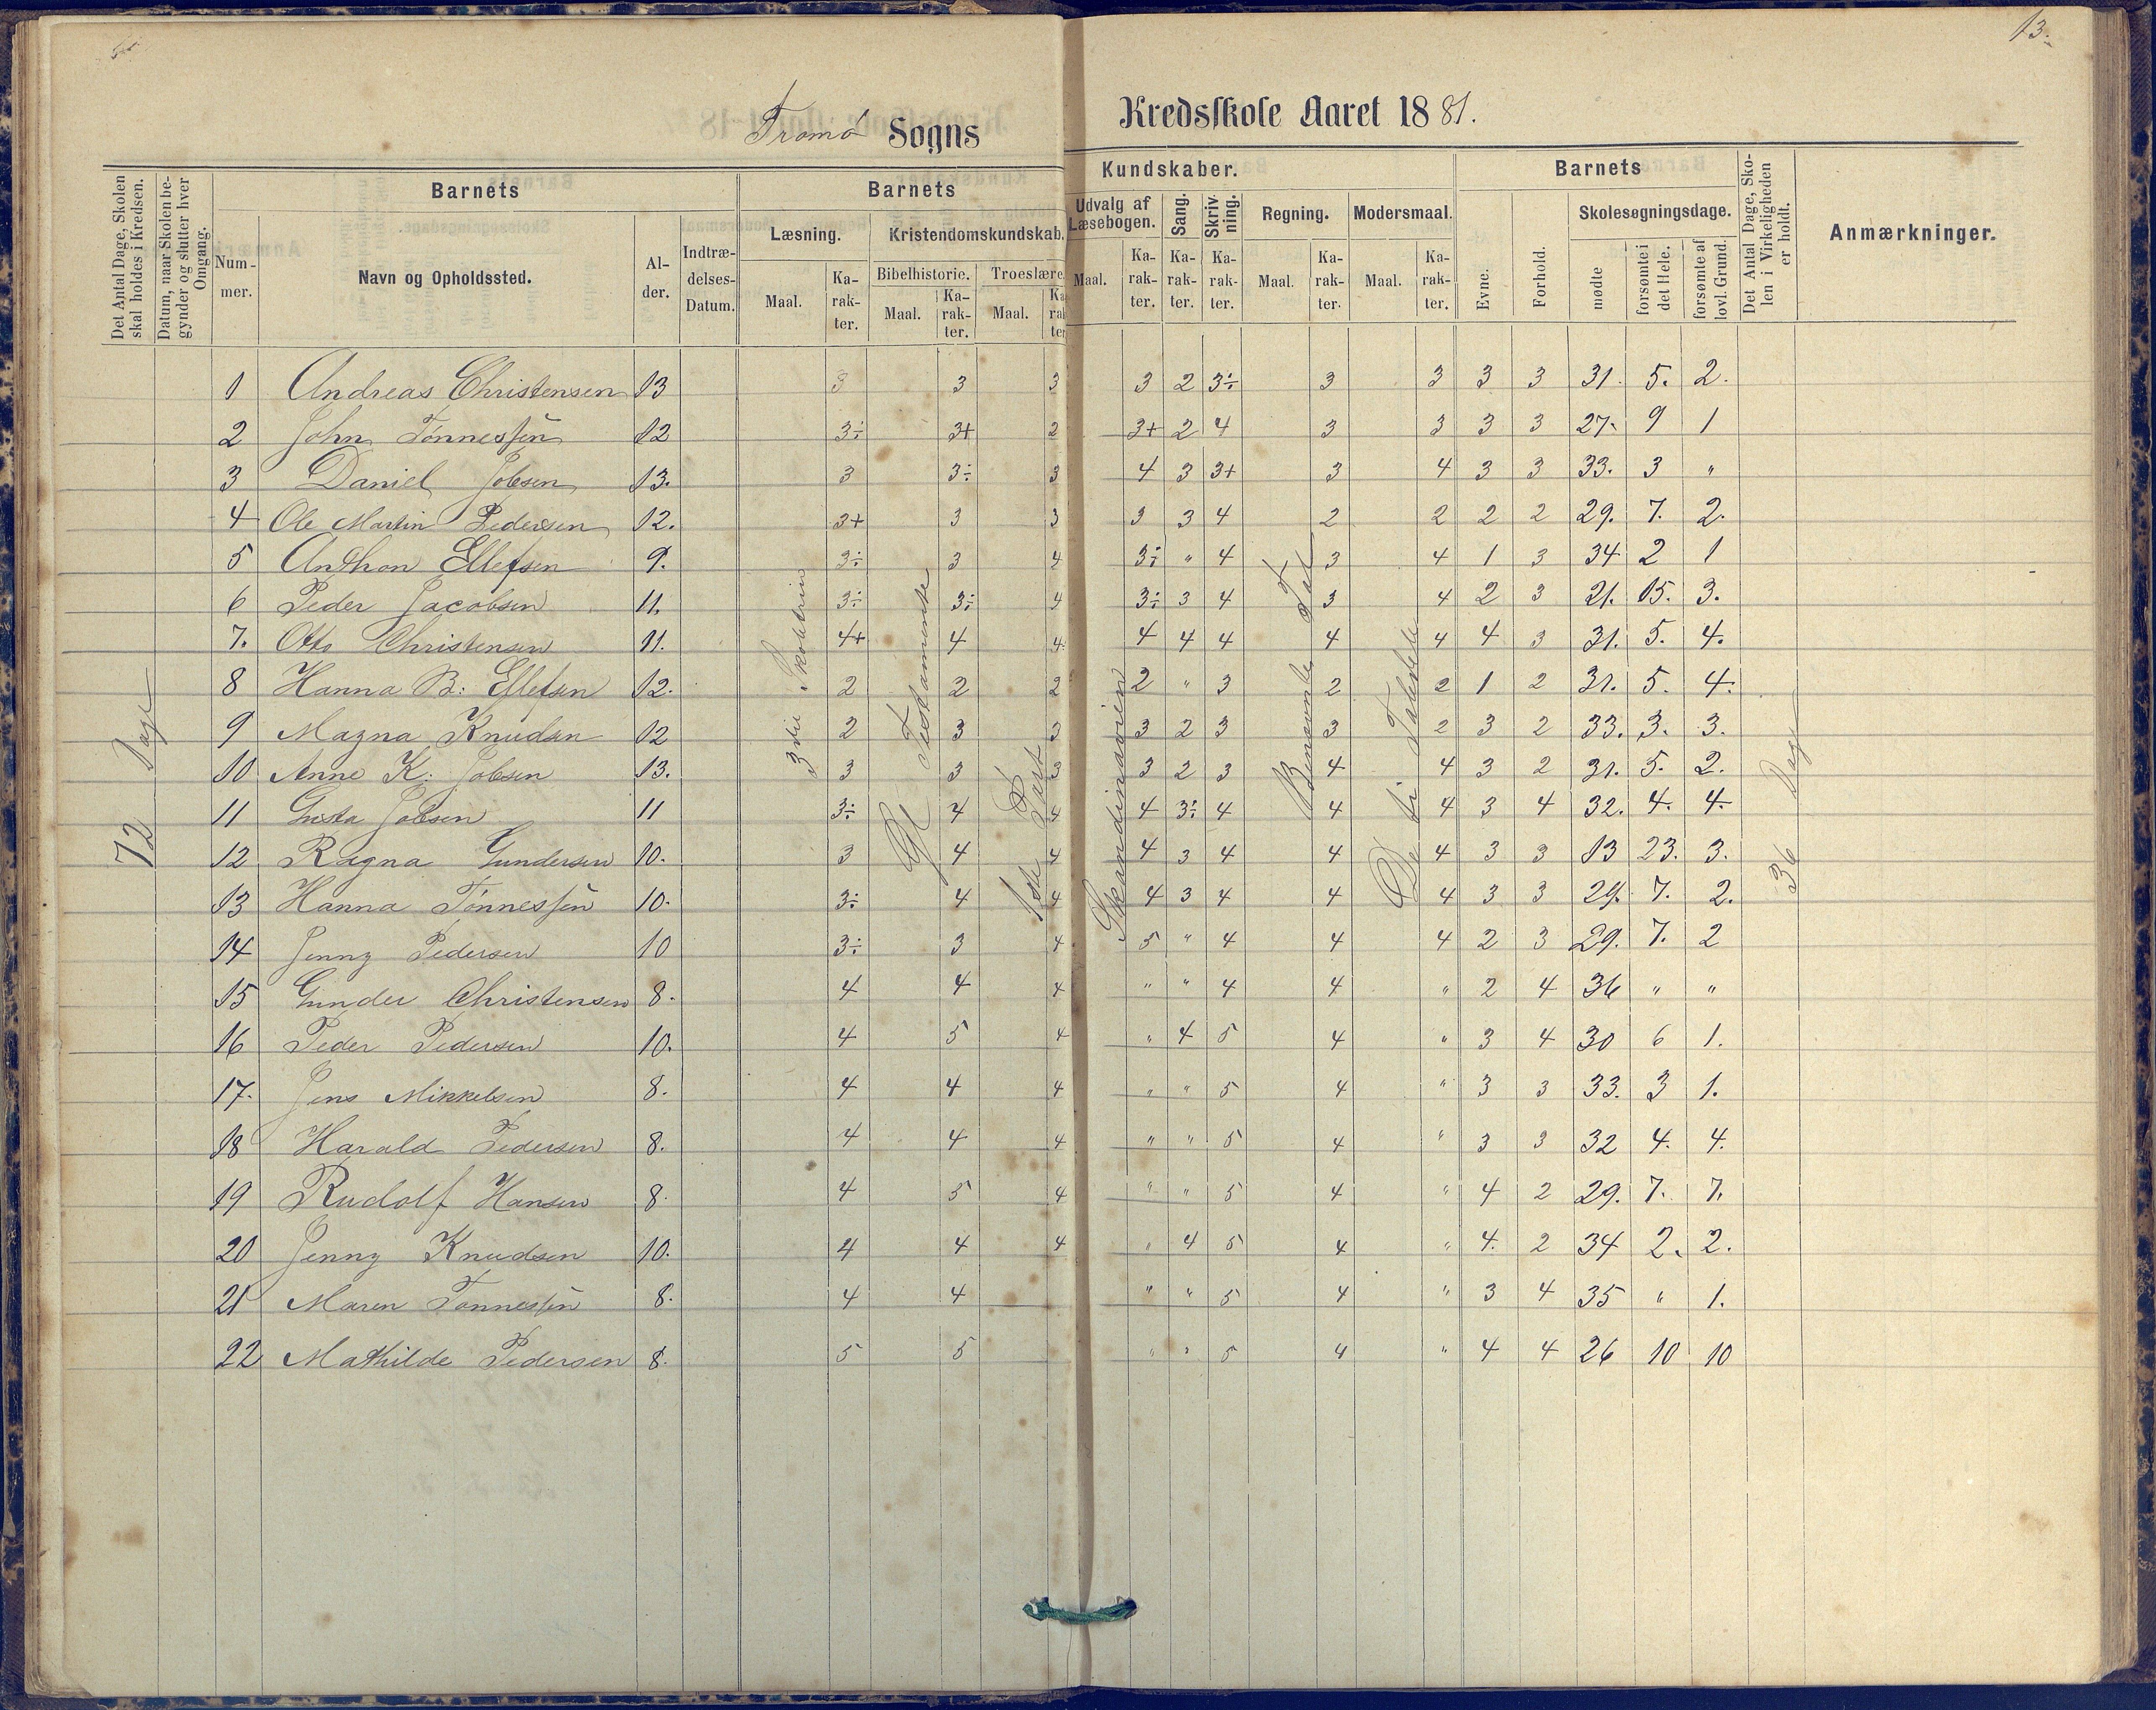 13.
Tromø Sogns Kredsskole Aaret 1881.
Det Antal Dage, Skolen skal holdes i Kredsen.
Datum, naar Skolen begynder og slutter hver Omgang.
Barnets
Nummer.
Navn og Opholdssted.
Alder.
Indtrædelses-Datum.
Barnets Kundskaber.
Læsning.
Maal. Karakter.
Kristendomskundskab.
Bibelhistorie. Troeslære.
Maal. Karakter. Maal. Karakter.
Udvalg af Læsebogen.
Maal. Karakter.
Sang. Karakter.
Skrivning. Karakter.
Regning. Maal. Karakter.
Modersmaal. Maal. Karakter.
Barnets
Evne. Forhold.
Skolesøgningsdage.
mødte forsømte i det Hele. forsømte af lovl. Grund.
Det Antal Dage, Skolen i Virkeligheden er holdt.
Anmærkninger.
72 Dage
3die
Gl Testamente
Part
Skandinavien
Benævnte Tal
De ti Taledele
36 Dage
1 Andreas Christensen 13 3 3 3 3 2 3÷ 3 3 3 3 31. 5. 2.
2 John Tønnessen 12 3÷ 3+ 2 3+ 2 4 3 3 3 3 27. 9 1
3 Daniel Jobsen 13. 3 3÷ 3 4 3 3+ 3 4 3 3 33. 3 "
4 Ole Martin Pedersen 12. 3+ 3 3 3 3 4 2 2 2 2 29. 7. 2.
5 Anthon Ellefsen 9. 3÷ 3 4 3÷ " 4 3 4 1 3 34 2 1
6 Peder Jacobsen 11. 3÷ 3÷ 4 3÷ 3 4 3 4 2 3 21. 15. 3.
7. Otto Christensen 11. 4+ 4 4 4 4 4 4 4 4 3 31. 5. 4.
8 Hanna B: Ellefsen 12. 2 2 2 2 " 3 2 2 1 2 31. 5. 4.
9 Magna Knudsen 12 2 3 3 3 2 3 3 2 3 2 33. 3. 3.
10 Anne K. Jobsen 13. 3 3 3 3 2 3 4 4 3 2 31. 5. 2.
11 Gusta Jobsen 11 3÷ 4 4 4 3÷ 4 4 4 3 4 32. 4. 4.
12 Ragna Gundersen 10. 3 4 4 4 3 4 4 4 3 3 13 23. 3.
13 Hanna Tønnessen 10. 3÷ 4 4 4 3 4 4 4 3 3 29. 7. 2.
14 Jenny Pedersen 10 3÷ 3 4 5 " 4 4 4 2 3 29. 7. 2
15 Gunder Christensen 8. 4 4 4 " " 4 4 " 2 4 36 " "
16 Peder Pedersen 10. 4 5 4 " 4 5 4 " 3 4 30 6 1.
17. Jens Mikkelsen 8. 4 4 4 " " 5 4 " 3 3 33. 3 1.
18 Harald Pedersen 8. 4 4 4 " " 5 4 " 3 3 32 4. 4.
19 Rudolf Hansen 8. 4 5 4 " " 5 4 " 4 2 29. 7. 7.
20 Jenny Knudsen 10. 4 4 4 " 4 5 4 " 4. 2 34 2. 2.
21 Maren Tønnessen 8. 4 4 " " 5 4 " 3 4 35 " 1.
22 Mathilde Pedersen 8. 5 5 " " 5 4 " 4 4 26 10 10